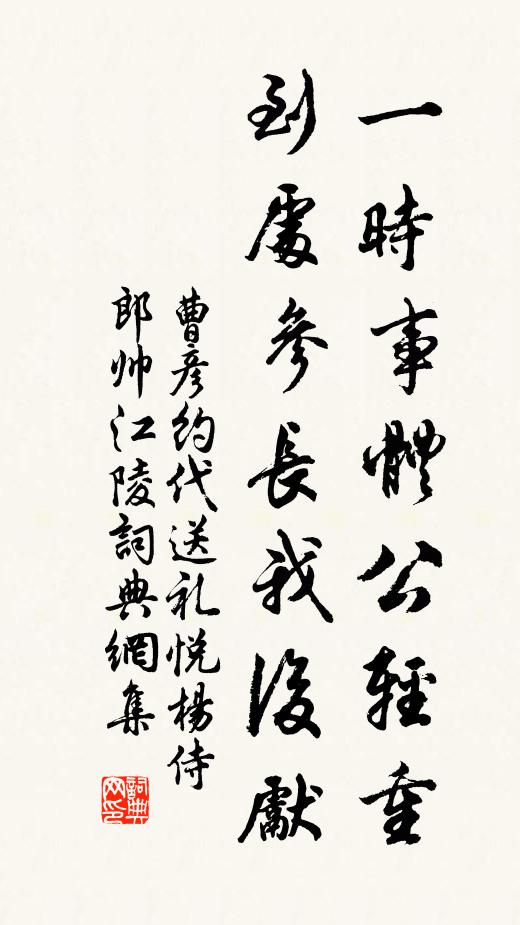 一時事體公輕重
到處參長我後獻
曹彦約代送礼悦楊侍
郎帅江陵詞典網集
詞典网印